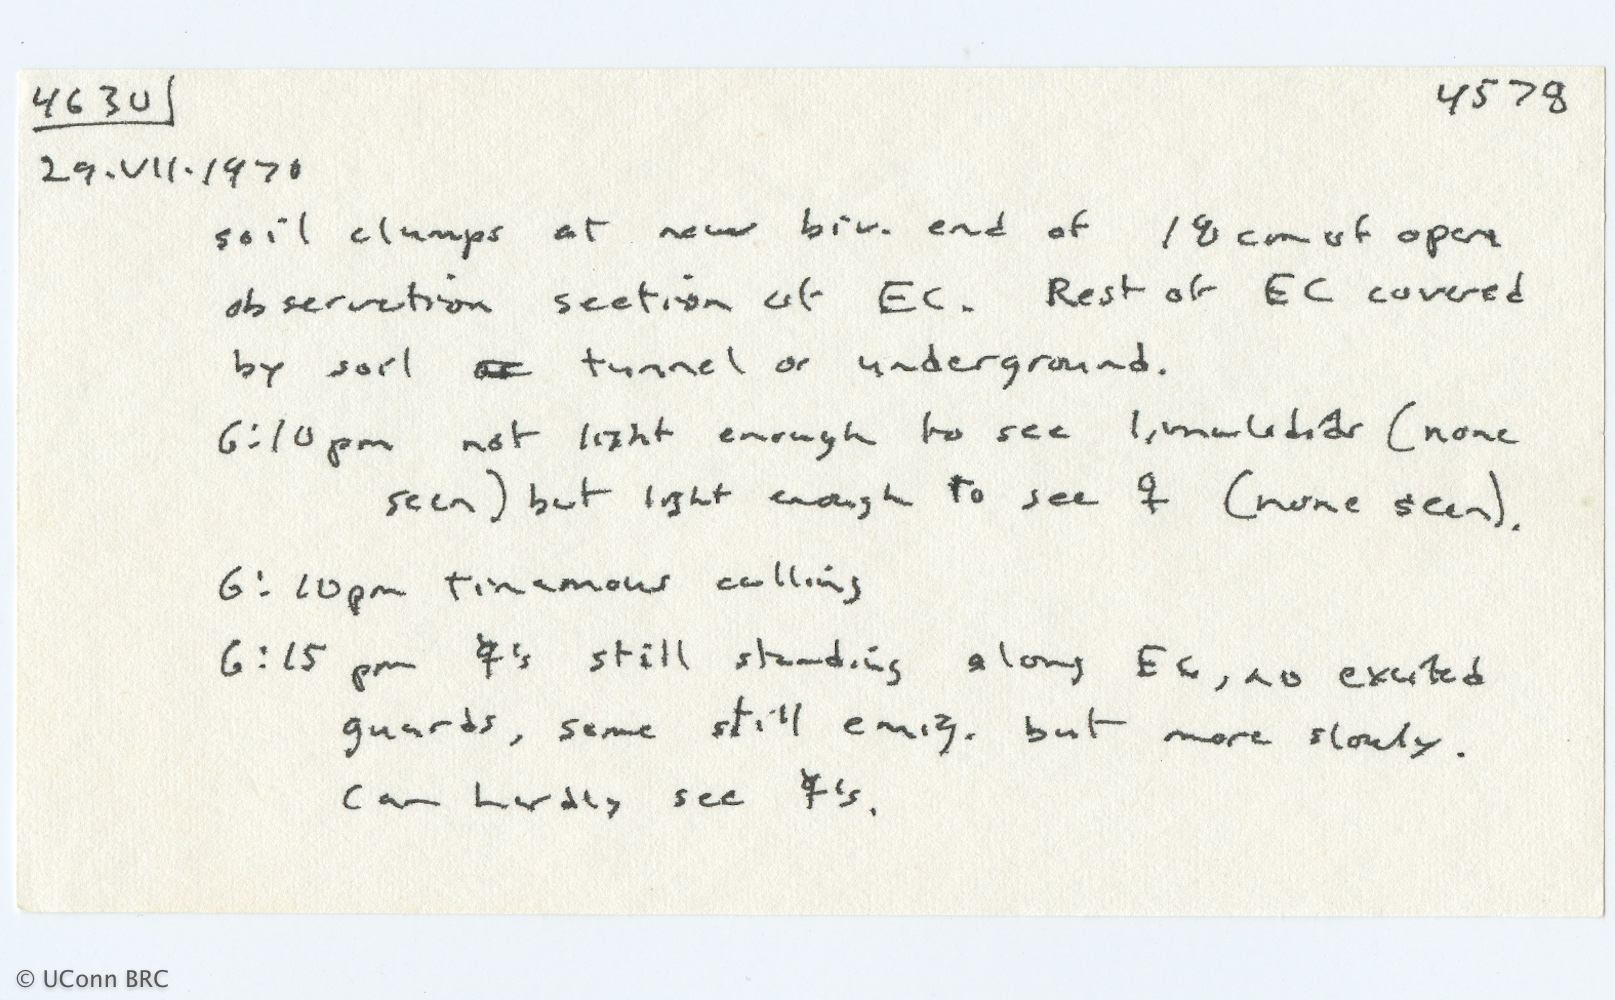 4630 4578
29.VII.1970
soil clumps at new biv. end of 18 cm of open
observation section of EC. Rest of EC covered
by soil tunnel or underground.
6:10 pm not light enough to see limulodids (none
seen) but light enough to see ♀ (none seen).
6:10 pm tinamous calling
6:15 pm ☿'s still standing along EC, no excited
guards, some still emig. but more slowly.
Can hardly see ☿'s.
© UConn BRC